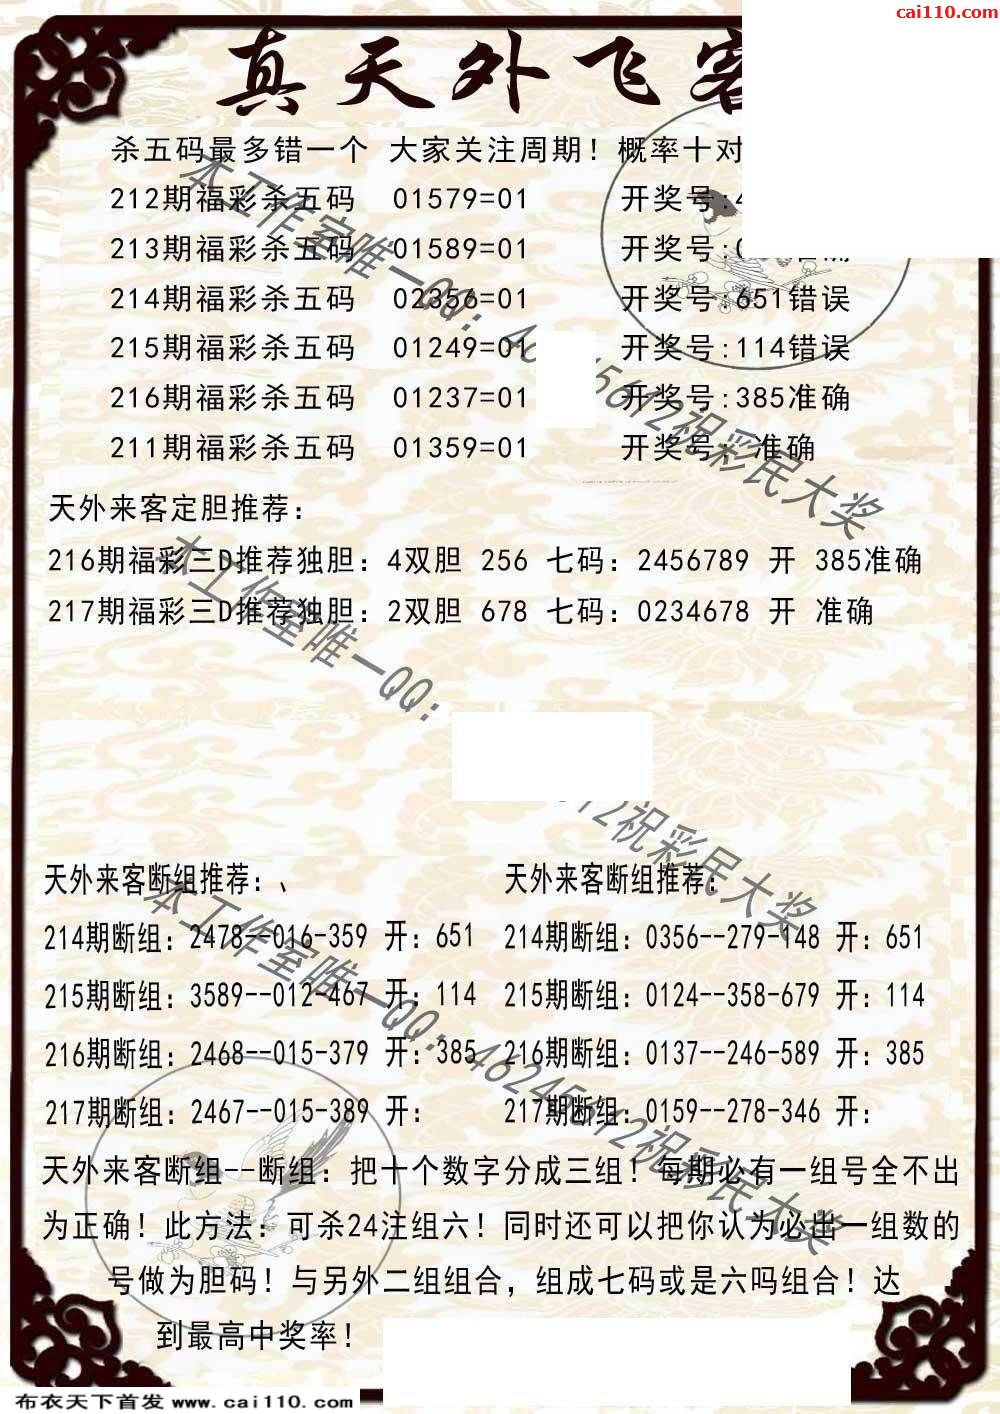 cai110.com
真天外飞客
杀五码最多错一个 大家关注周期！概率十对
212期福彩杀五码 01579=01 开奖号:4
213期福彩杀五码 01589=01 开奖号:
214期福彩杀五码 02356=01 开奖号:651错误
215期福彩杀五码 01249=01 开奖号:114错误
216期福彩杀五码 01237=01 开奖号:385准确
211期福彩杀五码 01359=01 开奖号: 准确
天外来客定胆推荐：
216期福彩三D推荐独胆：4双胆 256 七码：2456789 开 385准确
217期福彩三D推荐独胆：2双胆 678 七码：0234678 开 准确
天外来客断组推荐：、 天外来客断组推荐：
214期断组：2478--016-359 开：651 214期断组：0356--279-148 开：651
215期断组：3589--012-467 开：114 215期断组：0124--358-679 开：114
216期断组：2468--015-379 开：385 216期断组：0137--246-589 开：385
217期断组：2467--015-389 开： 217期断组：0159--278-346 开：
天外来客断组--断组：把十个数字分成三组！每期必有一组号全不出
为正确！此方法：可杀24注组六！同时还可以把你认为必出一组数的
号做为胆码！与另外二组组合，组成七码或是六吗组合！达
到最高中奖率！
本工作室唯一QQ：46 5612祝彩民大奖
本工作室唯一QQ： 12祝彩民大奖
本工作室唯一QQ：46245612祝彩民大奖
布衣天下首发 www.cai110.com